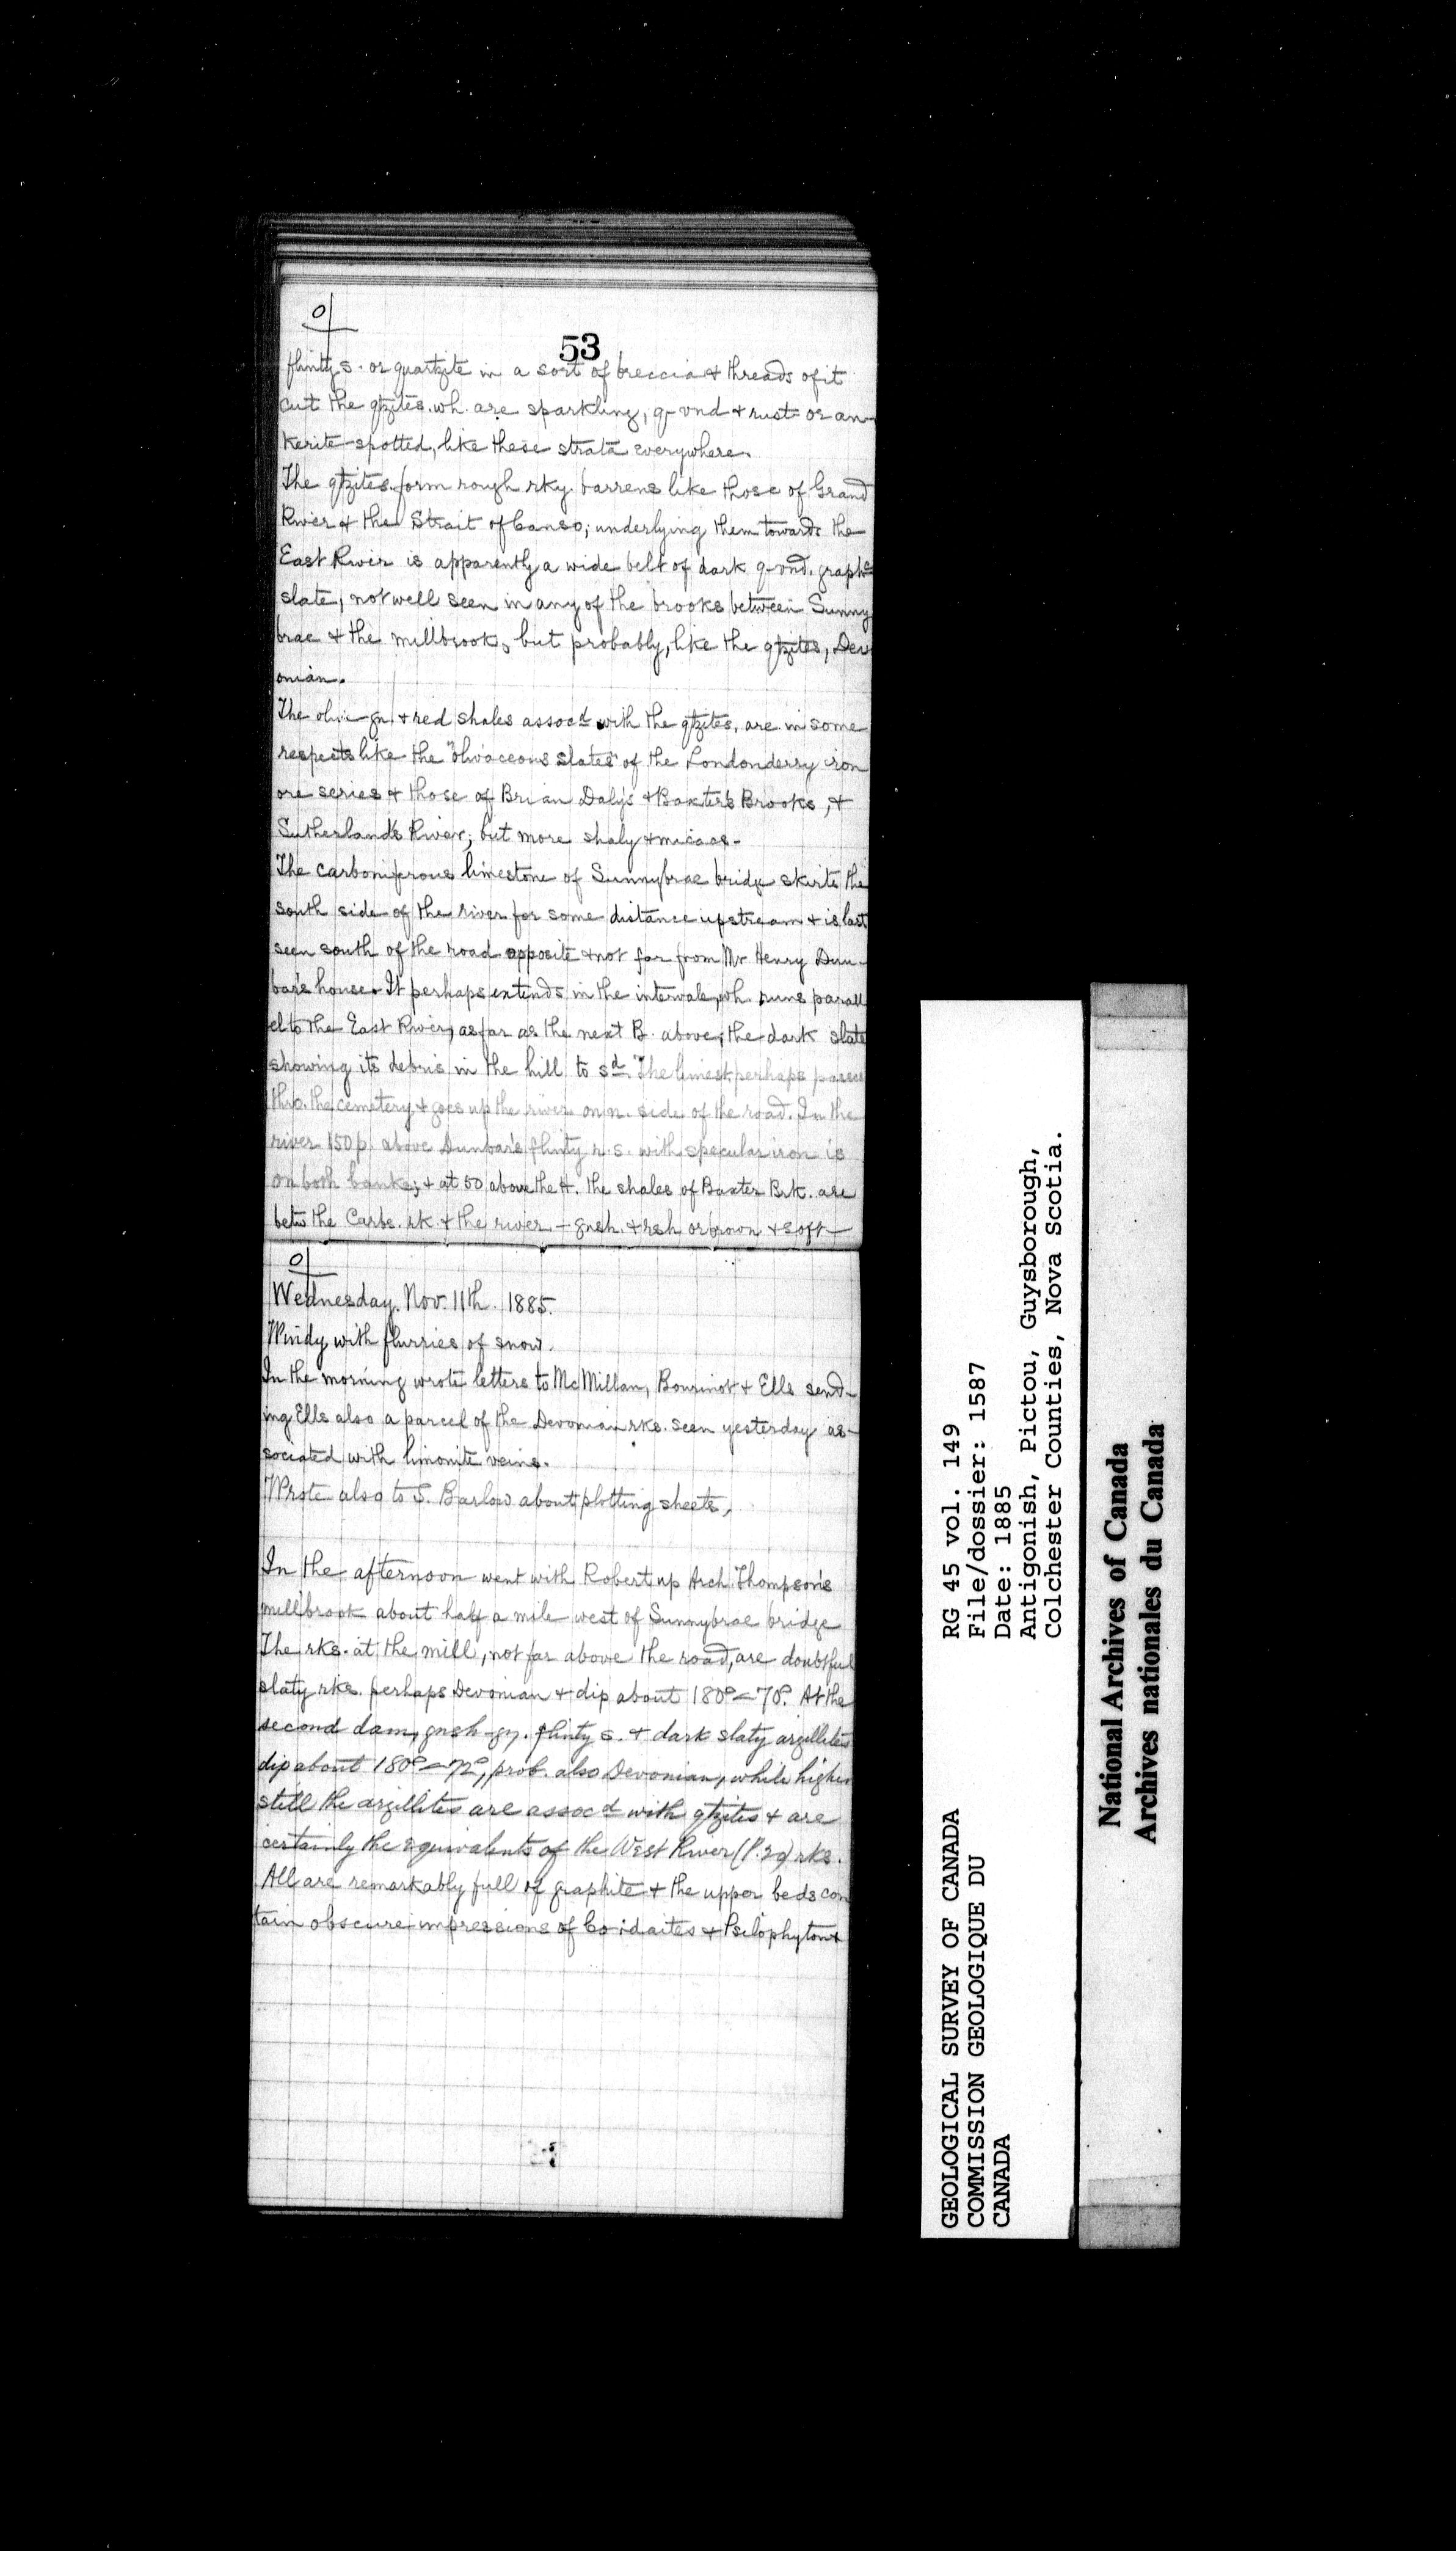 53
flinty s. or quartzite in a sort of breccia & threads of it
cut the qtzites. wh. are sparkling, q-vnd & rust- or an-
kerite-spotted, like these strata everywhere.
The qtzites form rough rky. barrens like those of Grand
River & the Strait of Canso; underlying them towards the
East River is apparently a wide belt of dark q-vnd. graphc
slate, not well seen in any of the brooks between Sunny
brae & the millbrook, but probably, like the qtzites, Dev
onian.
The oliv-gn. & red shales assocd with the qtzites, are in some
respects like the "olivaceous slates" of the Londonderry iron
ore series & those of Brian Daly's & Baxter's Brooks, &
Sutherland's River; but more shaly & micacs-
The carboniferous limestone of Sunnybrae bridge skirts the
south side of the river for some distance upstream & is last
seen south of the road opposite & not far from Mr Henry Dun-
bar's house. It perhaps extends in the intervale, wh. runs parall
el to the East River, as far as the next B. above; the dark slate
showing its debris in the hill to sd. The limest. perhaps passes
thro. the cemetery & goes up the river on n. side of the road. In the
river 150 p. above Dunbar's flinty r. s. with specular iron is
on both banks; & at 50 above the H. the shales of Baxter Brk. are
betw the Carbs. rk & the river - gnsh. & rsh or brown & soft
Wednesday. Nov. 11th. 1885.
Windy with flurries of snow.
In the morning wrote letters to McMillan, Bourinot & Ells send-
ing Ells also a parcel of the Devonian rks. seen yesterday as-
sociated with limonite veins.
Wrote also to S. Barlow about plotting sheets,
In the afternoon went with Robert up Arch. Thompson's
millbrook about half a mile west of Sunnybrae bridge
The rks. at the mill, not far above the road, are doubtful
slaty rks. perhaps Devonian & dip about 180°=70°. At the
second dam, gnsh-gy. flinty s. & dark slaty argillites
dip about 180°=72°, prob. also Devonian, while higher
still the argillites are assocd with qtzites & are
certainly the equivalents of the West River (P. 39) rks.
All are remarkably full of graphite & the upper beds con
tain obscure impressions of Cordaites & Psilophyton
GEOLOGICAL SURVEY OF CANADA
COMMISSION GEOLOGIQUE DU
CANADA
RG 45 vol. 149
File/dossier: 1587
Date: 1885
Antigonish, Pictou, Guysborough,
Colchester Counties, Nova Scotia.
National Archives of Canada
Archives nationales du Canada